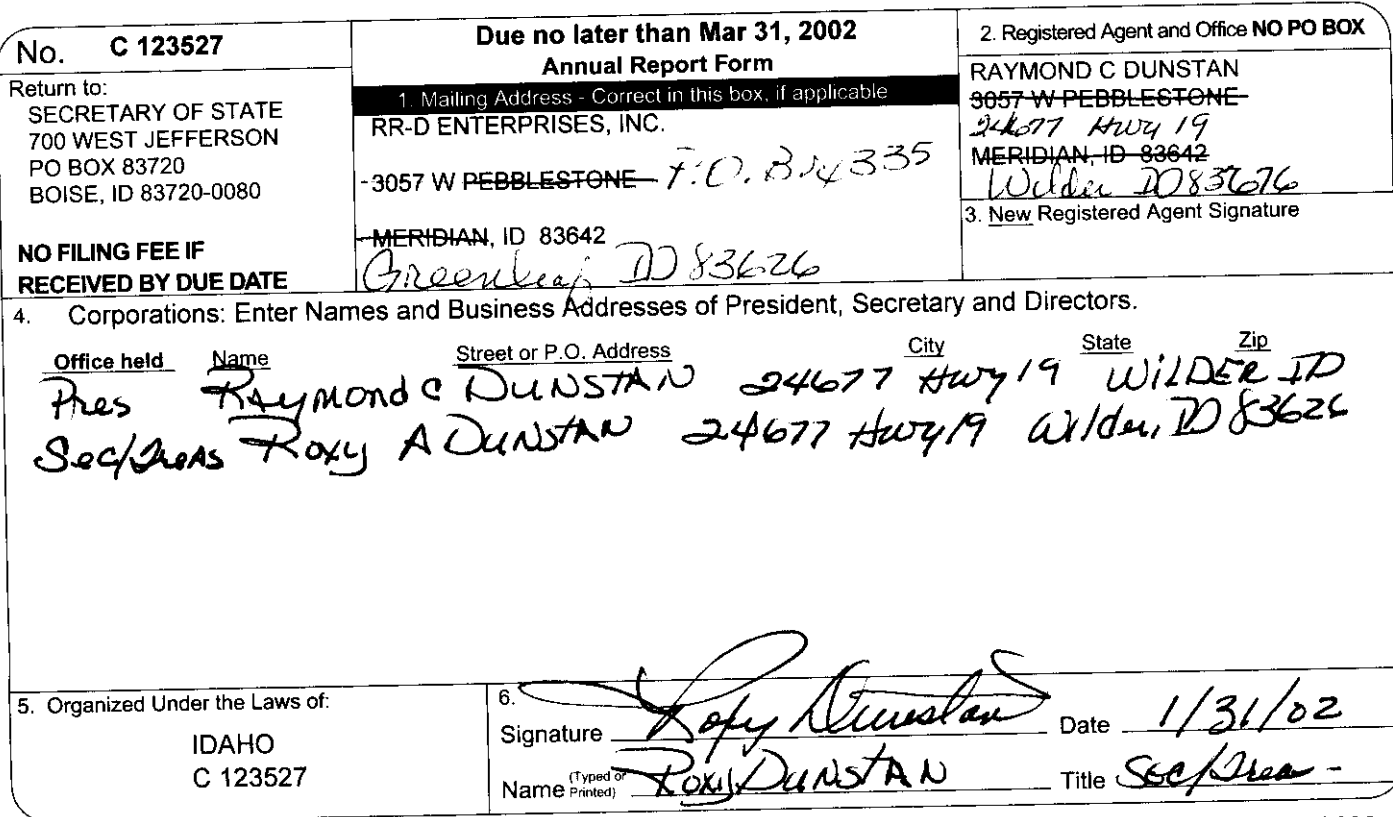 No. C 123527
Return to:
SECRETARY OF STATE
700 WEST JEFFERSON
PO BOX 83720
BOISE, ID 83720-0080
NO FILING FEE IF
RECEIVED BY DUE DATE
Due no later than Mar 31, 2002
Annual Report Form
1. Mailing Address - Correct in this box, if applicable
RR-D ENTERPRISES, INC.
3057 W PEBBLESTONE P.O. Box 335
MERIDIAN, ID 83642
Greenleaf ID 83626
2. Registered Agent and Office NO PO BOX
RAYMOND C DUNSTAN
3057 W PEBBLESTONE
24677 Hwy 19
MERIDIAN, ID 83642
Wilder ID 83676
3. New Registered Agent Signature
4. Corporations: Enter Names and Business Addresses of President, Secretary and Directors.
Office held Name Street or P.O. Address City State Zip
Pres Raymond C Dunstan 24677 Hwy 19 Wilder ID
Sec/Treas Roxy A Dunstan 24677 Hwy 19 Wilder, ID 83626
5. Organized Under the Laws of:
IDAHO
C 123527
6.
Signature Roxy Dunstan Date 1/31/02
Name (Typed or Printed) Roxy Dunstan Title Sec/Trea-